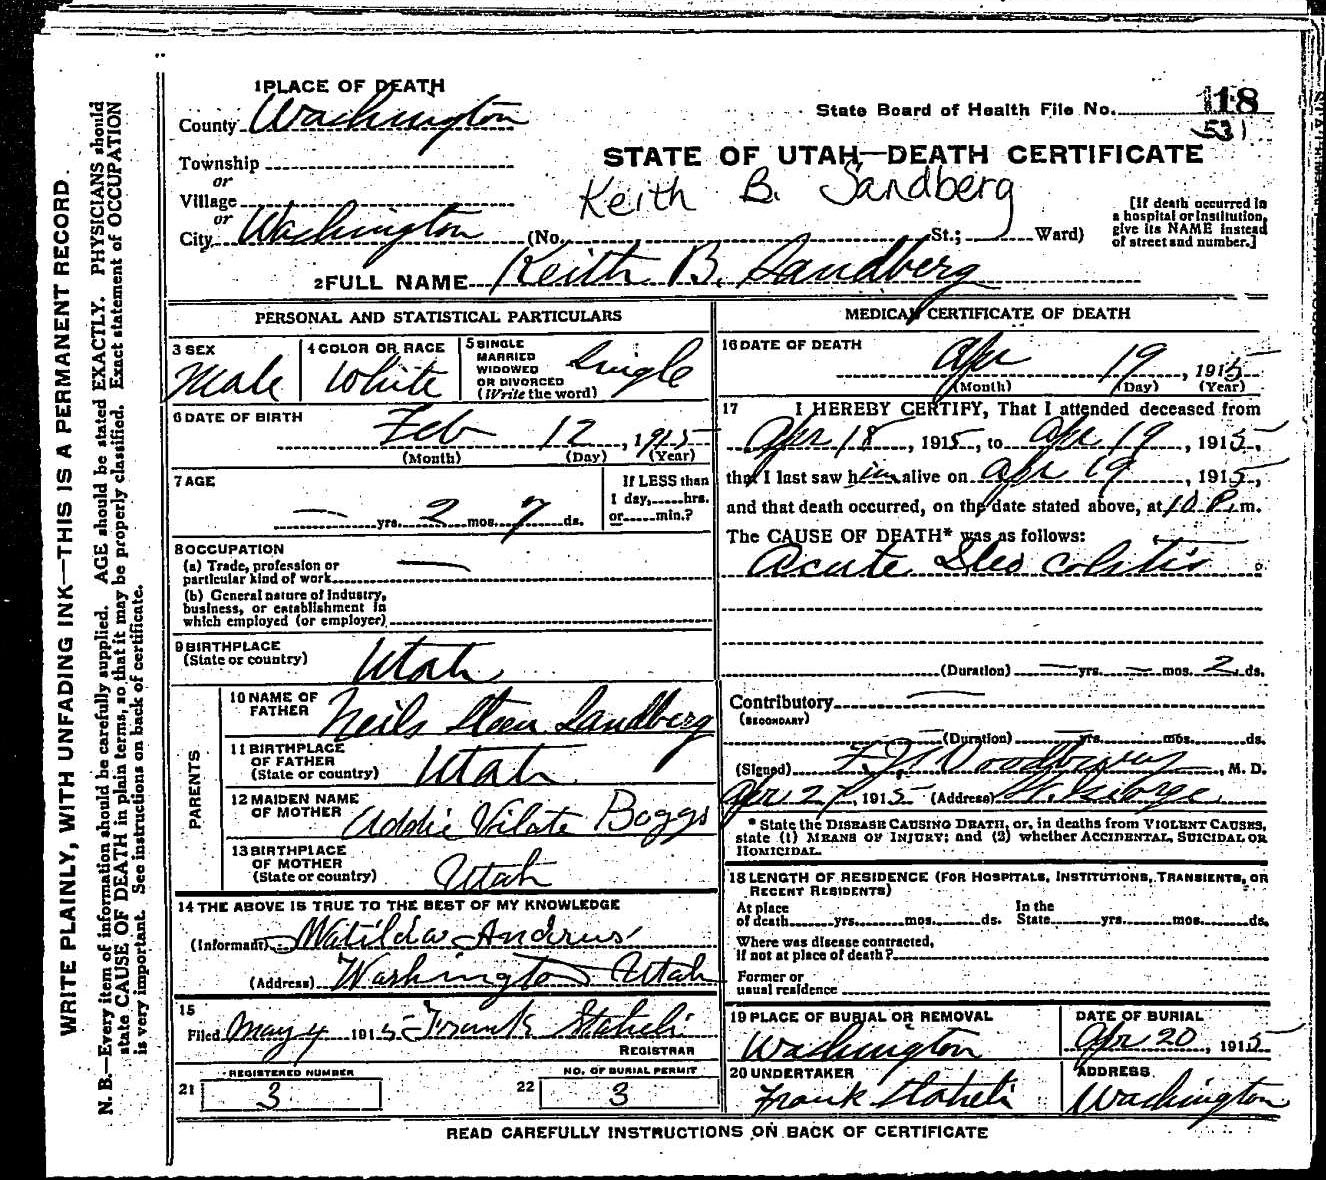 1 PLACE OF DEATH
County Washington
State Board of Health File No. 118
531
Township
or
Village
or
City Washington (No. St.; Ward)
STATE OF UTAH—DEATH CERTIFICATE
Keith B. Sandberg
[If death occurred in
a hospital or institution,
give its NAME instead
of street and number.]
2 FULL NAME Keith B. Sandberg
PERSONAL AND STATISTICAL PARTICULARS
3 SEX
Male
4 COLOR OR RACE
White
5 SINGLE
MARRIED
WIDOWED
OR DIVORCED
(Write the word)
Single
6 DATE OF BIRTH
Feb 12, 1915
(Month) (Day) (Year)
7 AGE
— yrs. 2 mos. 7 ds.
If LESS than
1 day, hrs.
or min.?
8 OCCUPATION
(a) Trade, profession or
particular kind of work —
(b) General nature of Industry,
business, or establishment in
which employed (or employer)
9 BIRTHPLACE
(State or country) Utah
PARENTS
10 NAME OF
FATHER Neils Steen Sandberg
11 BIRTHPLACE
OF FATHER
(State or country) Utah
12 MAIDEN NAME
OF MOTHER Addie Vilate Boggs
13 BIRTHPLACE
OF MOTHER
(State or country) Utah
14 THE ABOVE IS TRUE TO THE BEST OF MY KNOWLEDGE
(Informant) Matilda Andrus
(Address) Washington Utah
15
Filed May 4 1915 Frank Staheli
REGISTRAR
REGISTERED NUMBER
21 3
NO. OF BURIAL PERMIT
22 3
MEDICAL CERTIFICATE OF DEATH
16 DATE OF DEATH
Apr 19, 1915
(Month) (Day) (Year)
17 I HEREBY CERTIFY, That I attended deceased from
Apr 18, 1915, to Apr 19, 1915,
that I last saw him alive on Apr 19, 1915,
and that death occurred, on the date stated above, at 10 P. m.
The CAUSE OF DEATH* was as follows:
Acute Ileo colitis
(Duration) — yrs. — mos. 2 ds.
Contributory —
(SECONDARY)
(Duration) — yrs. mos. ds.
(Signed) F. J. Woodbury, M. D.
Apr 27, 1915 (Address) St. George
* State the DISEASE CAUSING DEATH, or, in deaths from VIOLENT CAUSES,
state (1) MEANS OF INJURY; and (2) whether ACCIDENTAL, SUICIDAL OR
HOMICIDAL.
18 LENGTH OF RESIDENCE (FOR HOSPITALS, INSTITUTIONS, TRANSIENTS, OR
RECENT RESIDENTS)
At place
of death yrs. mos. ds.
In the
State yrs. mos. ds.
Where was disease contracted,
If not at place of death?
Former or
usual residence
19 PLACE OF BURIAL OR REMOVAL
Washington
DATE OF BURIAL
Apr 20, 1915
20 UNDERTAKER
Frank Staheli
ADDRESS
Washington
READ CAREFULLY INSTRUCTIONS ON BACK OF CERTIFICATE
WRITE PLAINLY, WITH UNFADING INK—THIS IS A PERMANENT RECORD.
N. B.—Every item of information should be carefully supplied. AGE should be stated EXACTLY. PHYSICIANS should
state CAUSE OF DEATH in plain terms, so that it may be properly classified. Exact statement of OCCUPATION
is very important. See instructions on back of certificate.